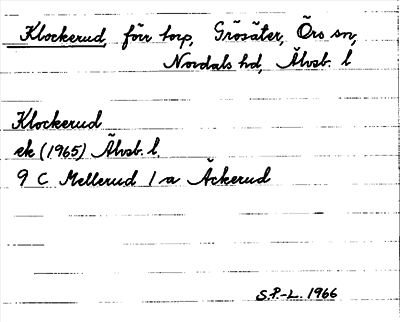 Klockerud, förr torp, Grösäter, Örs sn,
Nordals hd, Älvsb. l
Klockerud
ek (1965) Älvsb. l.
9 C Mellerud 1 a Åckerud
S.P.-L. 1966